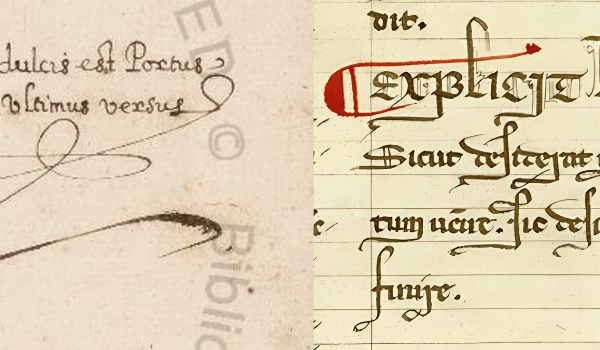 dulcis est Portus
Vltimus versus
dit.
EXPLICIT
Sicut desiderat
tum uenire. sic desi
finire.